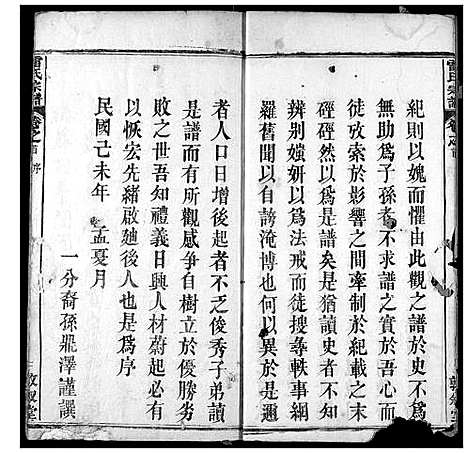 雷氏宗譜
卷之首
紀則以媿而懼由此觀之譜於史不爲
無助爲子孫者不求譜之實於吾心而
徒攷索於影響之間牽制於紀載之末
硜硜然以爲是譜矣是猶讀史者不知
辨別媸妍以爲法戒而徒搜尋軼事網
羅舊聞以自誇淹博也何以異於是邇
者人口日增後起者不乏俊秀子弟讀
是譜而有所觀感爭自樹立於優勝劣
敗之世吾知禮義日興人材蔚起必有
以恢宏先緒啟廸後人也是爲序
民國己未年 孟夏月
一分裔孫飛澤謹譔
雷氏宗譜
卷之首 序
敦叙堂